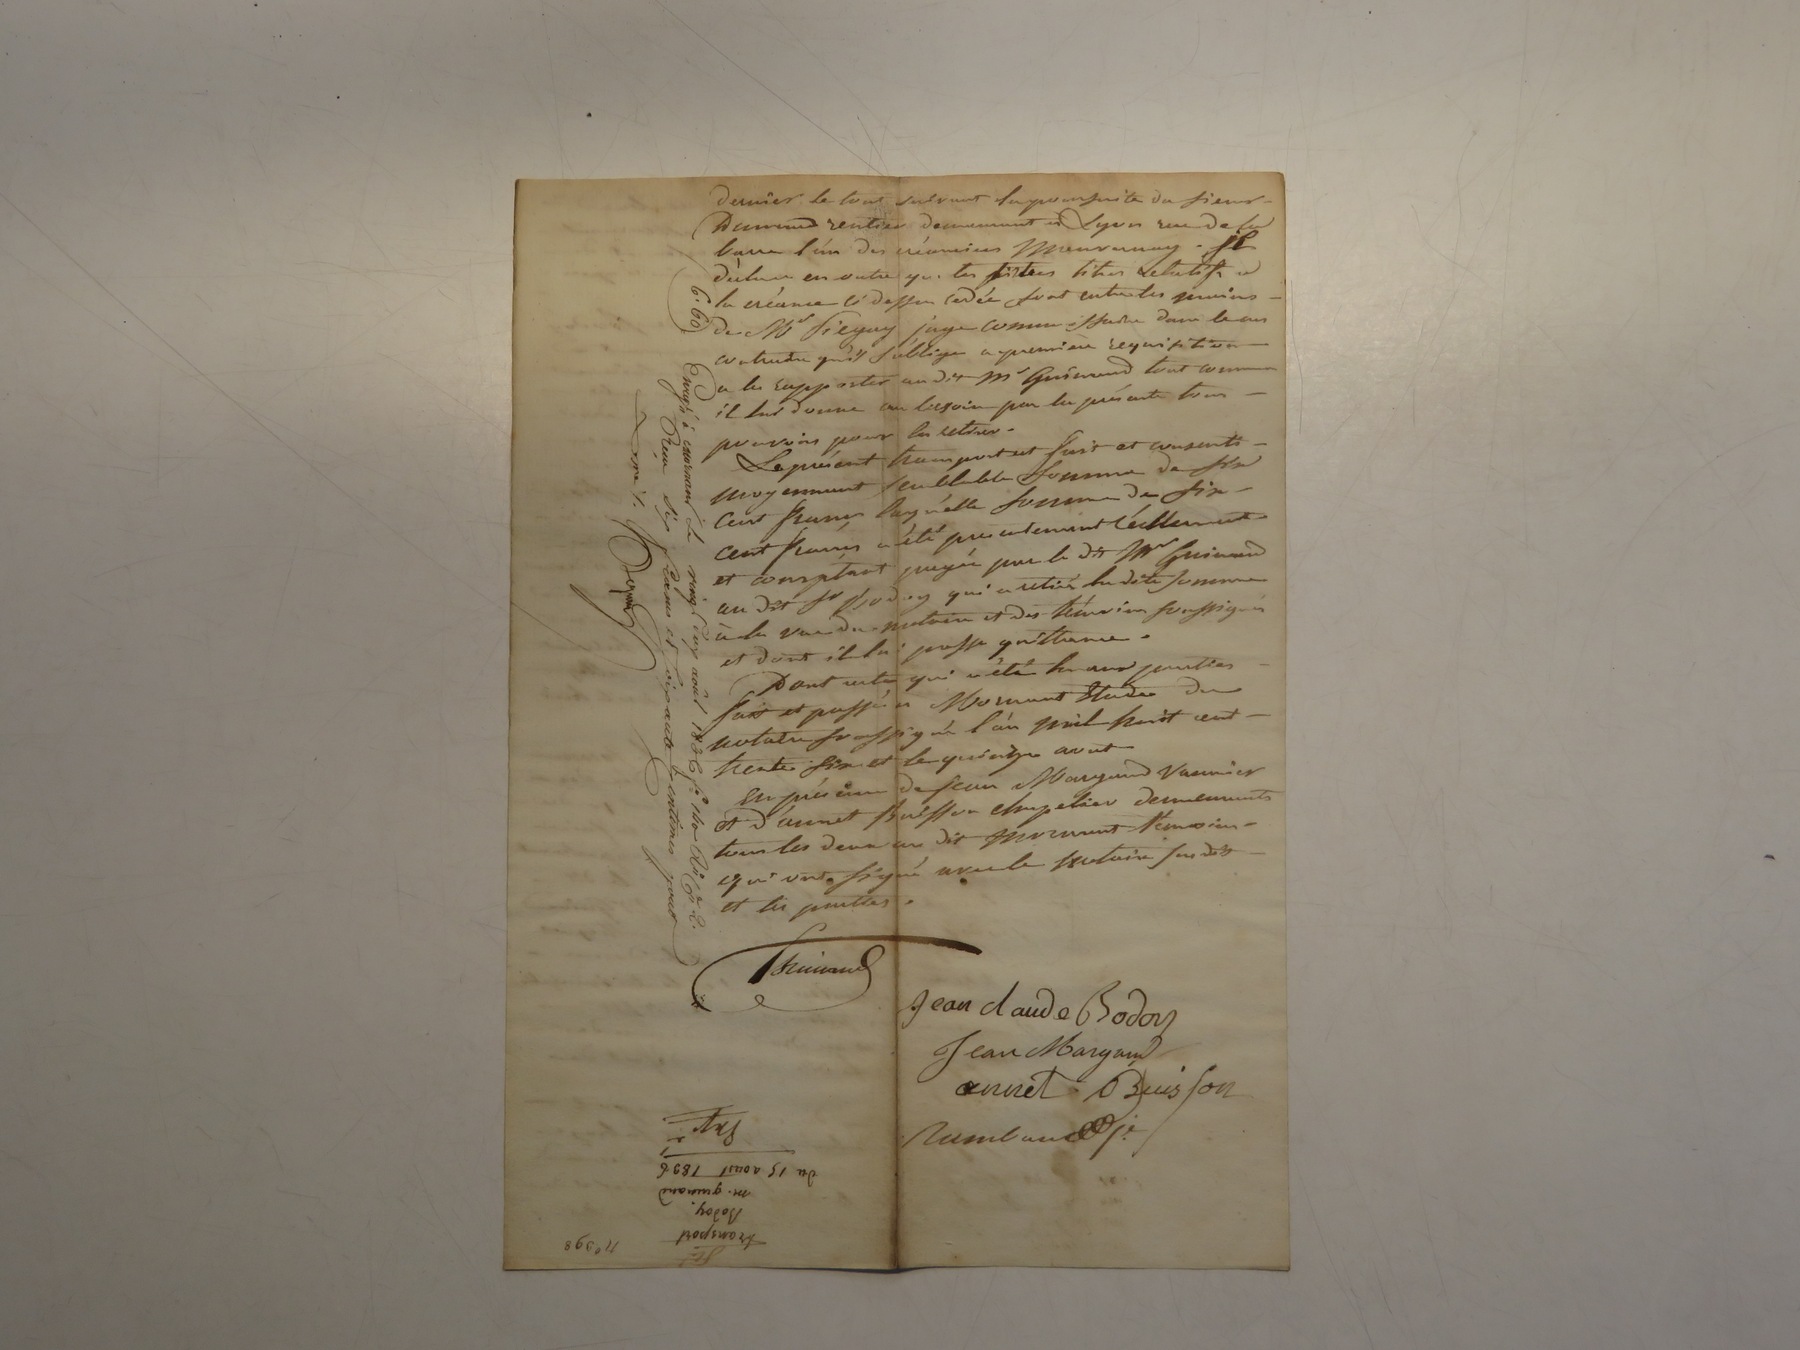 dernier le tout suivant la poursuite du sieur
Durand rentier demeurant à Lyon rue de la
barre l'un des créanciers . Il
déclare en outre que les titres relatifs a
la créance ci dessus cedée sont entre les mains
de Mr juge commissaire dans le cas
contraire qu'il s'oblige a première requisition
a les rapporter au dit Mr Guinand tout comme
il lui donne au besoin par la présente tous
pouvoirs pour les retirer.
Le présent transport est fait et consenti
moyennant semblable somme de six
cent francs laquelle somme de six
cent francs a été presentement réellement
et comptant payée par le dit Mr Guinand
au dit Sr Bodoy qui a retiré la dite somme
à la vue du notaire et des témoins soussignés
et dont il lui passe quittance.
Dont acte qui a été lu aux parties
fait et passé a Mornant Etude du
notaire soussigné l'an mil huit cent
trente six et le quinze aout
En présence de Jean Margand vannier
et d'annet Buisson chapelier demeurants
tous les deux au dit Mornant témoins
qui ont signé avec le notaire susdit
et les parties.
Guinand
Jean claude Bodoy
Jean Margand
annet Buisson
6.60
Enregé à mornant le vingt six aout 1836 fo 110 Ro
Reçu six francs et soixante centimes pour
du 15 aout 1836
m. guinand
Bodoy
transport
No 398